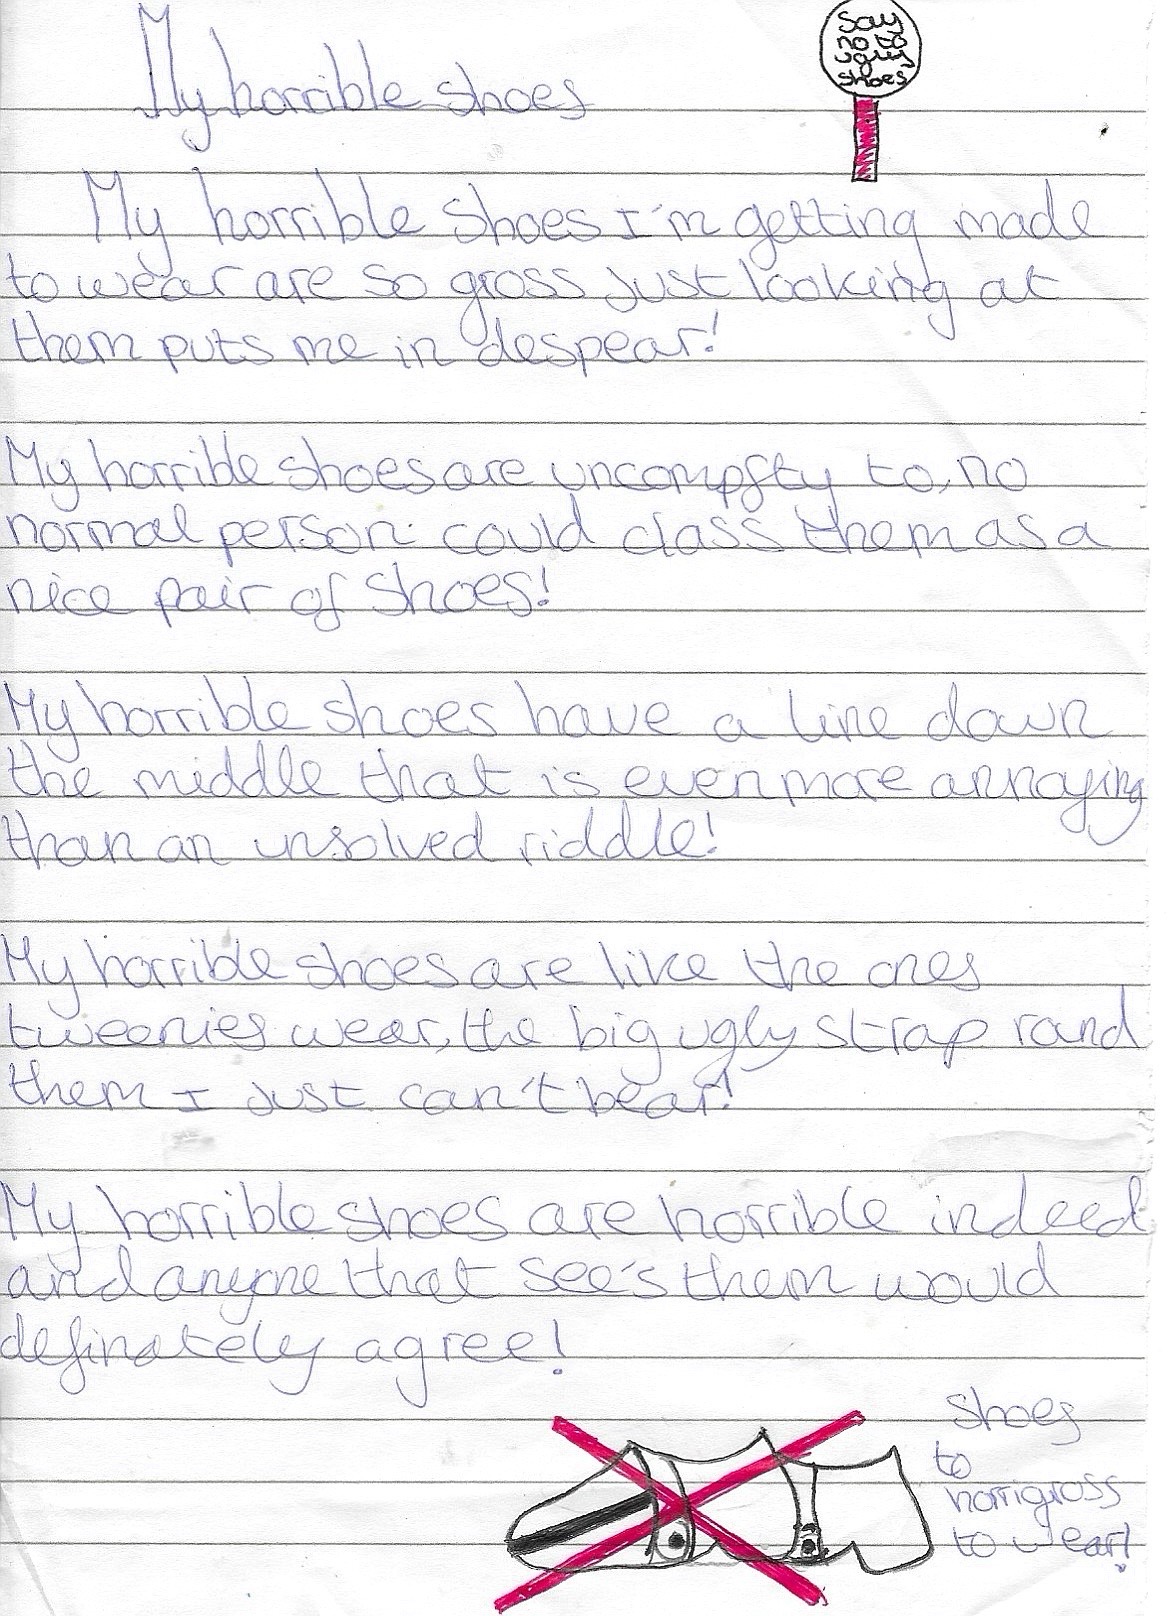 My horrible shoes
Say
no to
ugly
shoes
My horrible shoes I'm getting made
to wear are so gross just looking at
them puts me in despear!
My horrible shoes are uncompfty to, no
normal person could class them as a
nice pair of shoes!
My horrible shoes have a line down
the middle that is even more annoying
than an unsolved riddle!
My horrible shoes are like the ones
tweenies wear, the big ugly strap rand
them I just can't bear!
My horrible shoes are horrible indeed
and anyone that see's them would
definately agree!
shoes
to
horrigross
to wear!